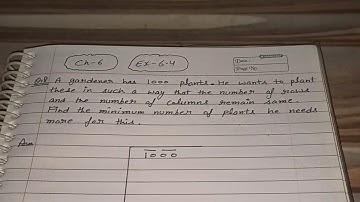 Ch-6 Ex-6.4
Date
Page No.
Q8 A gardener has 1000 plants. He wants to plant
these in such a way that the number of rows
and the number of columns remain same.
Find the minimum number of plants he needs
more for this.
Ans
1000